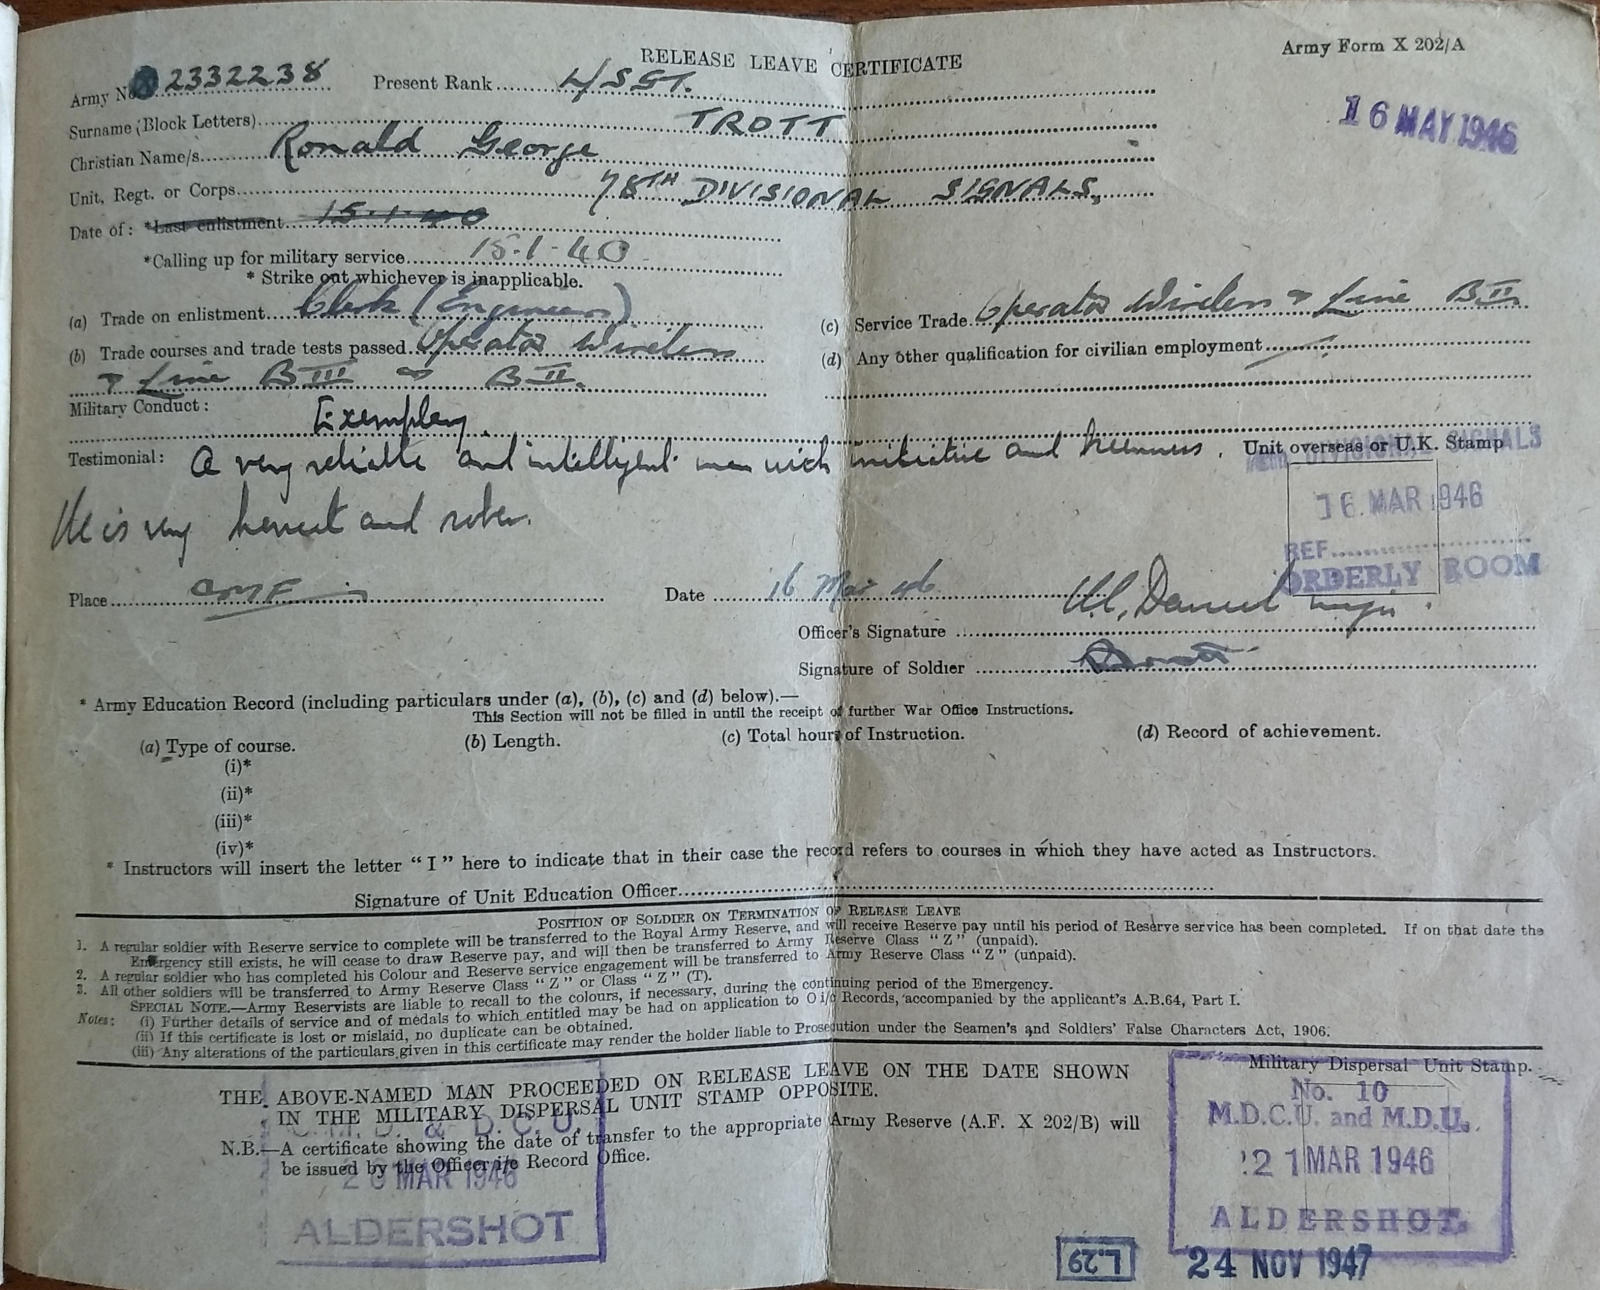 RELEASE LEAVE CERTIFICATE
Army Form X 202/A
Army No. 2332238 Present Rank L/SGT.
16 MAY 1946
Surname (Block Letters) TROTT
Christian Name/s Ronald George
Unit, Regt. or Corps 78TH DIVISIONAL SIGNALS.
Date of: *Last enlistment 15.1.40
*Calling up for military service 15.1.40
* Strike out whichever is inapplicable.
(a) Trade on enlistment Clerk (Engineers)
(c) Service Trade Operator Wireless & Line B.II
(b) Trade courses and trade tests passed Operator Wireless
& Line B III & B II.
(d) Any other qualification for civilian employment
Military Conduct: Exemplary.
Testimonial: A very reliable and intelligent man with initiative and keenness.
He is very honest and sober.
Unit overseas or U.K. Stamp
DIVISIONAL SIGNALS
16 MAR 1946
REF
ORDERLY ROOM
Place CMF Date 16 Mar 46
Officer's Signature Daniel Major.
Signature of Soldier
* Army Education Record (including particulars under (a), (b), (c) and (d) below).—
This Section will not be filled in until the receipt of further War Office Instructions.
(a) Type of course. (b) Length. (c) Total hours of Instruction. (d) Record of achievement.
(i)*
(ii)*
(iii)*
(iv)*
* Instructors will insert the letter "I" here to indicate that in their case the record refers to courses in which they have acted as Instructors.
Signature of Unit Education Officer
POSITION OF SOLDIER ON TERMINATION OF RELEASE LEAVE
1. A regular soldier with Reserve service to complete will be transferred to the Royal Army Reserve, and will receive Reserve pay until his period of Reserve service has been completed. If on that date the
Emergency still exists, he will cease to draw Reserve pay, and will then be transferred to Army Reserve Class "Z" (unpaid).
2. A regular soldier who has completed his Colour and Reserve service engagement will be transferred to Army Reserve Class "Z" (unpaid).
3. All other soldiers will be transferred to Army Reserve Class "Z" or Class "Z" (T).
SPECIAL NOTE.—Army Reservists are liable to recall to the colours, if necessary, during the continuing period of the Emergency.
Notes: (i) Further details of service and of medals to which entitled may be had on application to O i/c Records, accompanied by the applicant's A.B.64, Part I.
(ii) If this certificate is lost or mislaid, no duplicate can be obtained.
(iii) Any alterations of the particulars given in this certificate may render the holder liable to Prosecution under the Seamen's and Soldiers' False Characters Act, 1906.
THE ABOVE-NAMED MAN PROCEEDED ON RELEASE LEAVE ON THE DATE SHOWN
IN THE MILITARY DISPERSAL UNIT STAMP OPPOSITE.
N.B.—A certificate showing the date of transfer to the appropriate Army Reserve (A.F. X 202/B) will
be issued by the Officer i/c Record Office.
& D.C.U.
20 MAR 1946
ALDERSHOT
Military Dispersal Unit Stamp.
No. 10
M.D.C.U. and M.D.U.
21 MAR 1946
ALDERSHOT.
L.29
24 NOV 1947